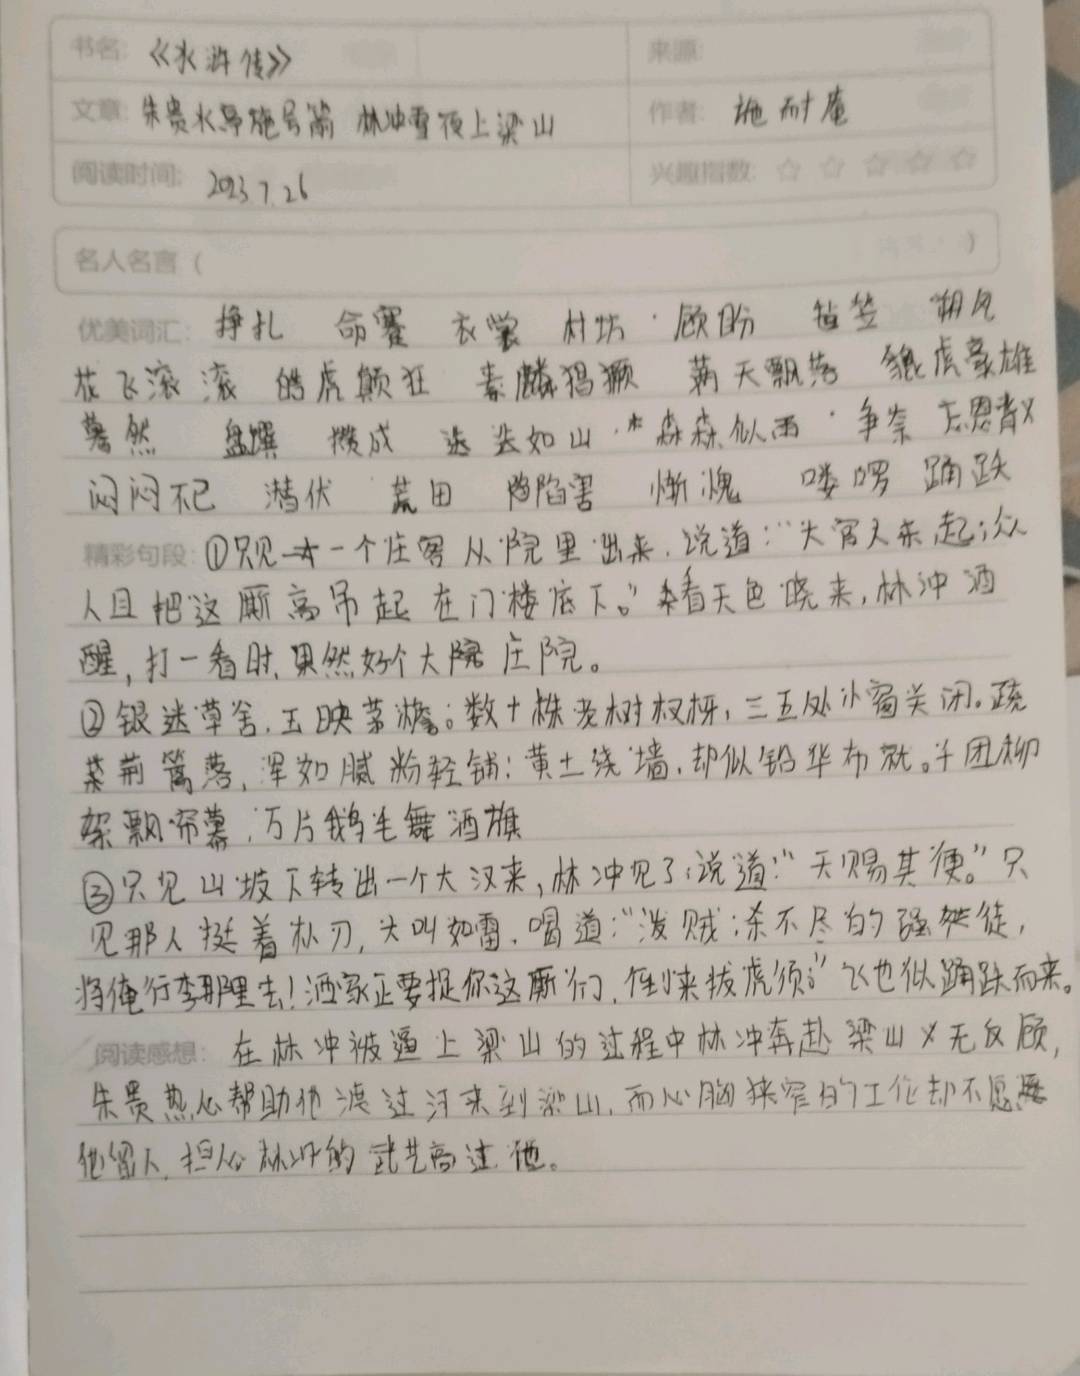 书名: 《水浒传》 来源:
文章: 朱贵水亭施号箭 林冲雪夜上梁山 作者: 施耐庵
阅读时间: 2023.7.26 兴趣指数: ☆ ☆ ☆ ☆ ☆
名人名言 ( )
优美词汇: 挣扎 命蹇 衣裳 村坊 顾盼 毡笠 朔风
花飞滚滚 皓虎颠狂 素麟猖獗 满天飘落 貔虎豪雄
蓦然 盘馔 攒成 迭迭如山 森森似雨 争奈 忘恩背义
闷闷不已 潜伏 荒田 陷害 惭愧 喽啰 踊跃
精彩句段: ①只见一个庄客从院里出来,说道:“大官人来起;众
人且把这厮高吊起在门楼底下。”看天色晓来,林冲酒
醒,打一看时,果然好个大 庄院。
②银迷草舍,玉映茅檐。数十株老树杈枒,三五处小窗关闭。疏
荆篱落,浑如腻粉轻铺;黄土绕墙,却似铅华布就。千团柳
絮飘帘幕,万片鹅毛舞酒旗
③只见山坡下转出一个大汉来,林冲见了,说道:“天赐其便。”只
见那人挺着朴刀,大叫如雷,喝道:“泼贼;杀不尽的强徒,
将俺行李那里去!洒家正要捉你这厮们,倒来拔虎须。”飞也似踊跃而来。
阅读感想: 在林冲被逼上梁山的过程中林冲奔赴梁山义无反顾,
朱贵热心帮助他渡过河来到梁山,而心胸狭窄的王伦却不愿
他留人,担心林冲的武艺高过他。